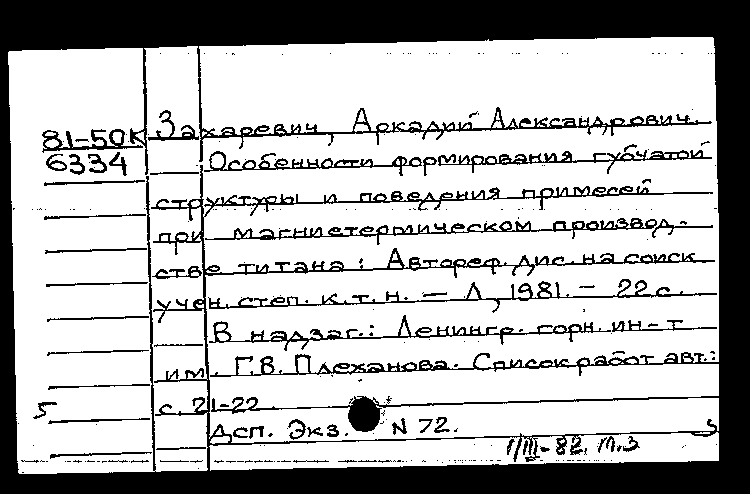 81-50К Захаревич, Аркадий Александрович.
6334 Особенности формирования губчатой
структуры и поведения примесей
при магниетермическом производ-
стве титана: Автореф. дис. на соиск
учен. степ. к.т.н. — Л, 1981. — 22 с.
В надзаг.: Ленингр. горн. ин-т
им. Г.В. Плеханова. Список работ авт.:
5 с. 21-22.
Дсп. Экз. N 72.
1/III-82.